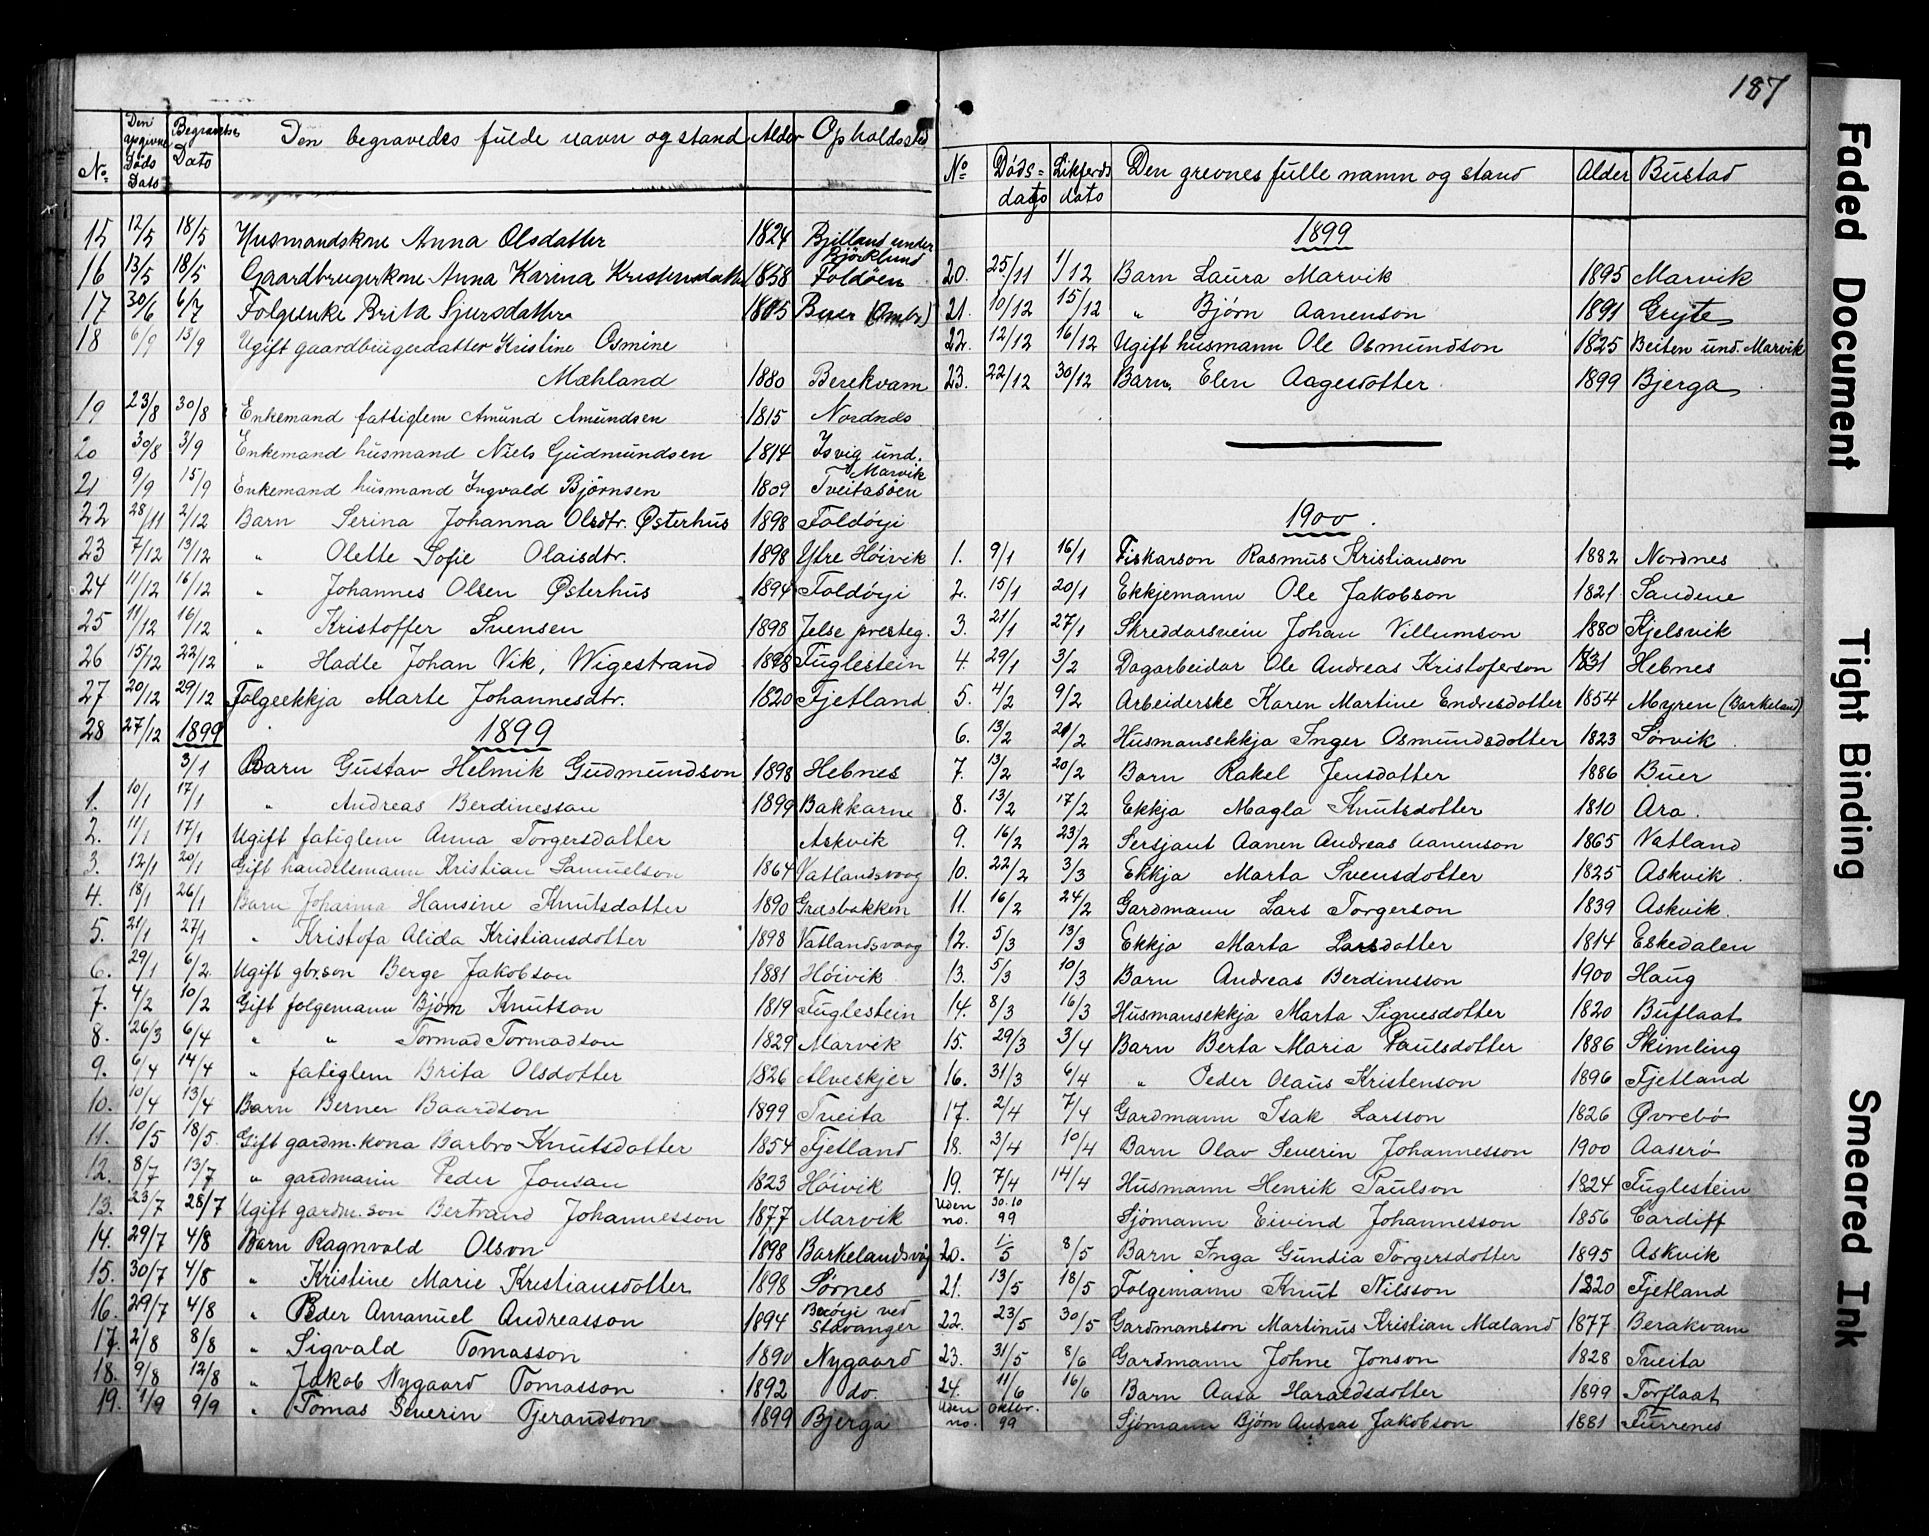 187
No. Den opgivne Døds Dato Begravelses Dato Den begravedes fulde navn og stand Alder Opholdssted
15 12/5 18/5 Husmandskne Anna Olsdatter 1824 under Bjørklund
16 13/5 18/5 Gaardbrugerkone Anna Karina Kristensdatter 1858 Foldøen
17 30/6 6/7 Folgeenke Brita Sjursdatter 1815 Buer (Ombo)
18 6/9 13/9 Ugift gaardbrugerdatter Kristine Osmine
Mæhland 1880 Berekvam
19 23/8 30/8 Enkemand fattiglem Amund Amundsen 1815 Nordnes
20 30/8 3/9 Enkemand husmand Niels Gudmundsen 1814 Isvig und. Marvik
21 9/9 15/9 Enkemand husmand Ingvald Bjørnsen 1809 Tveitasøen
22 28/11 2/12 Barn Serina Johanna Olsdtr. Østerhus 1898 Foldøyi
23 7/12 13/12 " Olette Sofie Olaisdtr. 1898 Ytre Høivik
24 11/12 16/12 " Johannes Olsen Østerhus 1894 Foldøyi
25 11/12 16/12 " Kristoffer Svensen 1898 Jelse presteg.
26 15/12 22/12 " Hadle Johan Vik, Wigestrand 1898 Fuglestein
27 20/12 29/12 Folgeekkja Marte Johannesdtr. 1820 Tjetland
28 27/12 1899 1899
3/1 Barn Gustav Helmik Gudmundson 1898 Hebnes
1. 10/1 17/1 " Andreas Berdinesson 1899 Bakkarne
2. 11/1 17/1 Ugift fatiglem Anna Torgersdatter Askvik
3. 12/1 20/1 Gift handelsmann Kristian Samuelson 1864 Vatlandsvaag
4. 18/1 26/1 Barn Johanna Hansine Knutsdatter 1890 Grasbakken
5. 21/1 27/1 " Kristofa Alida Kristiansdotter 1898 Vatlandsvaag
6. 29/1 6/2 Ugift gbr.son Berge Jakobson 1881 Høivik
7. 4/2 10/2 Gift folgemann Bjørn Knutson 1819 Fuglestein
8. 26/3 6/4 " " Tormod Tormodson 1829 Marvik
9. 6/4 14/4 " fatiglem Brita Olsdotter 1826 Alveskjer
10. 10/4 13/4 Barn Berner Baardson 1899 Tveita
11. 10/5 18/5. Gift gardm.kona Barbro Knutsdotter 1854 Tjetland
12. 8/7 13/7 " gardmann Peder Jonsan 1823 Høivik
13. 23/7 28/7 Ugift gardm.son Bertrand Johannesson 1877 Marvik
14. 29/7 4/8 Barn Ragnvald Olson 1898 Barkelandsvåg
15. 30/7 4/8 " Kristine Marie Kristiansdotter 1898 Sørnes
16. 29/7 4/8 " Peder Amanuel Andreasson 1894 Buøyi ved Stavanger
17. 2/8 8/8 " Sigvald Tomasson 1890 Nygaard
18. 9/8 12/8 " Jakob Nygaard Tomasson 1892 do.
19. 1/9 9/9 " Tomas Severin Tjerandson 1899 Bjerga
No. Døds=dato Likferds dato Den grevnes fulle namn og stand Alder Bustad
1899
20. 25/11 1/12 Barn Laura Marvik 1895 Marvik
21. 10/12 15/12 " Bjørn Aanenson 1891 Gryte
22. 12/12 16/12 Ugift husmann Ole Osmundson 1825 Beiten und. Marvik
23. 22/12 30/12 Barn, Elen Aagesdotter 1899 Bjerga
1900
1. 9/1 16/1 Fiskarson Rasmus Kristianson 1882 Nordnes
2. 15/1 20/1 Ekkjemann Ole Jakobson 1821 Sandene
3. 21/1 27/1 Skreddarsvein Johan Villumson 1880 Kjelsvik
4. 29/1 3/2 Dagarbeidar Ole Andreas Kristoferson 1831 Hebnes
5. 4/2 9/2 Arbeiderske Karen Martine Endresdotter 1854 Myren (Barkeland)
6. 13/2 21/2 Husmansekkja Inger Osmundsdotter 1823 Sørvik
7. 13/2 20/2 Barn Rakel Jensdotter 1886 Buer
8. 13/2 17/2 Ekkja Magla Knutsdotter 1810 Ara.
9. 16/2 23/2 Sersjant Aanen Andreas Aanenson 1865 Vatland
10. 22/2 3/3 Ekkja Marta Svensdotter 1825 Askvik.
11. 16/2 24/2 Gardmann Lars Torgerson 1839 Askvik.
12. 5/3 13/3 Ekkja Marta Larsdotter 1814 Eskedalen
13. 5/3 10/3 Barn Andreas Berdinesson 1900 Haug
14. 8/3 16/3 Husmansekkja Marta Signesdotter 1820 Buflaat
15. 29/3 3/4 Barn Berta Maria Paulsdotter 1886 Skimling
16. 31/3 6/4 " Peder Olaus Kristenson 1896 Tjetland
17. 2/4 7/4 Gardmann Isak Larsson 1826 Øvrebø
18. 3/4 10/4 Barn Olav Severin Johannesson 1900 Aaserø
19. 7/4 14/4 Husmann Henrik Paulson 1824 Fuglestein
Uden no. 30.10 99 Sjømann Eivind Johannesson 1856 Cardiff
20. 1/5 8/5 Barn Inga Gundia Torgersdotter 1895 Askvik
21. 13/5 18/5 Folgemann Knut Nilsson 1820 Tjetland
22. 23/5 30/5 Gardmansson Martinus Kristian Mæland 1877 Berakvam
23. 31/5 8/6 Gardmann Johne Jonson 1828 Tveita
24. 11/6 16/6 Barn Aasa Haraldsdotter 1899 Torflaat
Uden no. oktbr. 99 Sjømann Bjørn Andreas Jakobson 1881 Furrenes
Faded Document
Tight Binding
Smeared Ink